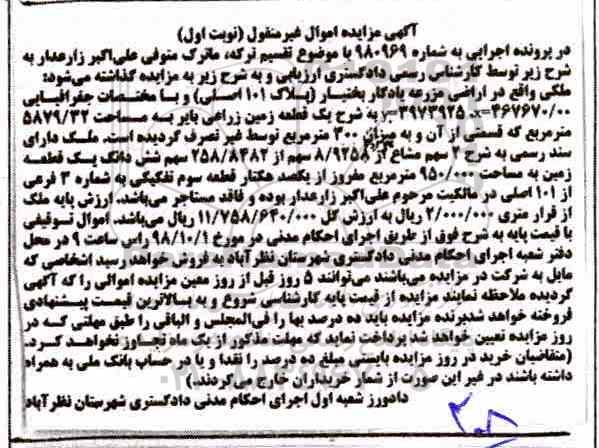 آگهی مزایده اموال غیرمنقول (نوبت اول)
در پرونده اجرایی به شماره ۹۸۰۹۶۹ با موضوع تقسیم ترکه، ماترک متوفی علی‌اکبر زارعدار به
شرح زیر توسط کارشناس رسمی دادگستری ارزیابی و به شرح زیر به مزایده گذاشته می‌شود:
ملکی واقع در اراضی مزرعه یادکار بختیار (پلاک ۱۰۱ اصلی) و با مختصات جغرافیایی
x=۴۶۷۶۷۰/۰۰ y=۳۹۷۳۹۲۵ به شرح یک قطعه زمین زراعی بایر به مساحت ۵۸۷۹/۳۲
مترمربع که قسمتی از آن و به میزان ۳۰۰ مترمربع توسط غیر تصرف گردیده است. ملک دارای
سند رسمی به شرح ۲ سهم مشاع از ۸/۹۲۵۸ سهم از ۲۵۸/۸۴۸۲ سهم شش دانگ یک قطعه
زمین به مساحت ۹۵۰/۰۰۰ مترمربع مفروز از یکصد هکتار قطعه سوم تفکیکی به شماره ۳ فرعی
از ۱۰۱ اصلی در مالکیت مرحوم علی‌اکبر زارعدار بوده و فاقد مستاجر می‌باشد. ارزش پایه ملک
از قرار متری ۲/۰۰۰/۰۰۰ ریال به ارزش کل ۱۱/۷۵۸/۶۴۰/۰۰۰ ریال می‌باشد. اموال توقیفی
با قیمت پایه به شرح فوق از طریق اجرای احکام مدنی در مورخ ۹۸/۱۰/۱ راس ساعت ۹ در محل
دفتر شعبه اجرای احکام مدنی دادگستری شهرستان نظرآباد به فروش خواهد رسید اشخاصی که
مایل به شرکت در مزایده می‌باشند می‌توانند ۵ روز قبل از روز معین مزایده اموالی را که آگهی
گردیده ملاحظه نمایند مزایده از قیمت پایه کارشناسی شروع و به بالاترین قیمت پیشنهادی
فروخته خواهد شدبرنده مزایده باید ده درصد بها را فی‌المجلس و الباقی را طبق مهلتی که در
روز مزایده تعیین خواهد شد پرداخت نماید که مهلت مذکور از یک ماه تجاوز نخواهد کرد.
(متقاضیان خرید در روز مزایده بایستی مبلغ ده درصد را نقدا و یا در حساب بانک ملی به همراه
داشته باشند در غیر این صورت از شمار خریداران خارج می‌گردند.)
دادورز شعبه اول اجرای احکام مدنی دادگستری شهرستان نظرآباد